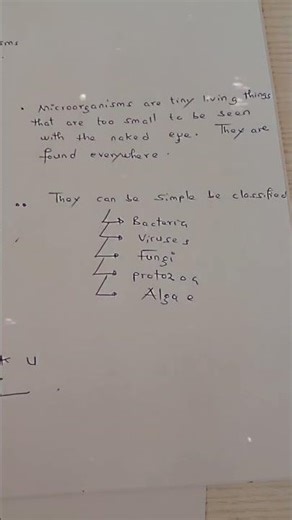 sms
• Microorganisms are tiny living things
that are too small to be seen
with the naked eye. They are
found everywhere.
•• They can be simple be classified
Bacteria
Viruses
Fungi
Protozoa
Algae
K U